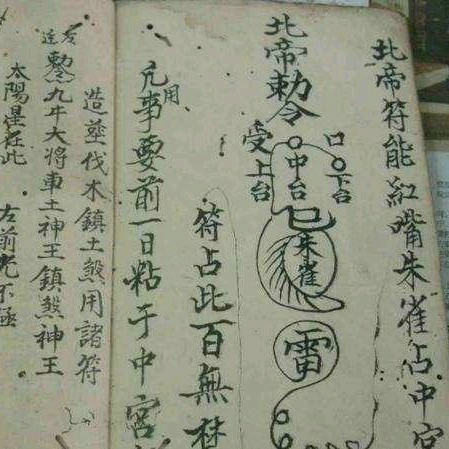 北帝符能紅嘴朱雀占中宮
北帝勅令
口
中台
下台
受上台
朱雀
雷
符占此百無禁
凡用事要前一日粘于中宮
造塟伐木鎮土煞用諸符
勅令九牛大將軍土神王鎮煞神王
太陽星在此
左前